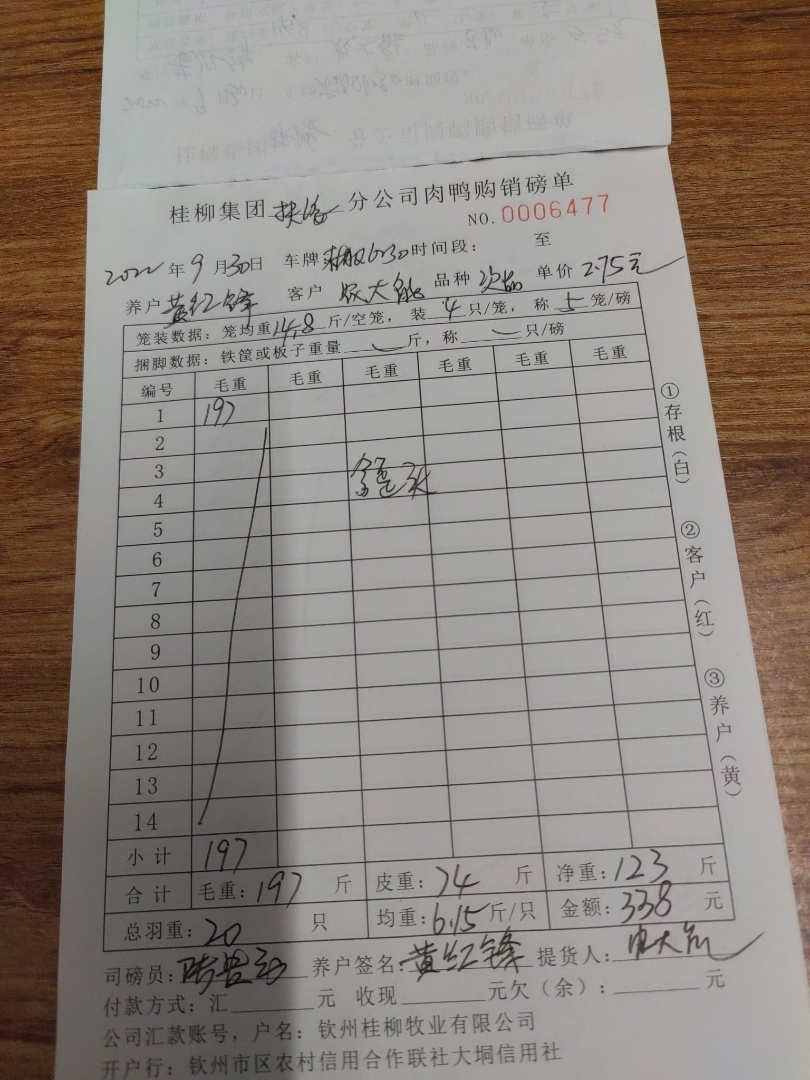 桂柳集团 分公司肉鸭购销磅单
NO. 0006477
2022年9月30日 车牌 6030 时间段: 至
养户 黄红锋 客户 大 品种 次品 单价 2.75元
笼装数据: 笼均重14.8斤/空笼, 装4只/笼, 称5笼/磅
捆脚数据: 铁筐或板子重量 斤, 称 只/磅
编号 毛重 毛重 毛重 毛重 毛重 毛重
1 197
2
3
4
5
6
7
8
9
10
11
12
13
14
小计 197
合计 毛重: 197 斤 皮重: 74 斤 净重: 123 斤
总羽重: 20 只 均重: 6.15斤/只 金额: 338 元
司磅员: 养户签名: 黄红锋 提货人:
付款方式: 汇 元 收现 元欠(余): 元
公司汇款账号, 户名: 钦州桂柳牧业有限公司
开户行: 钦州市区农村信用合作联社大垌信用社
①存根(白)
②客户(红)
③养户(黄)